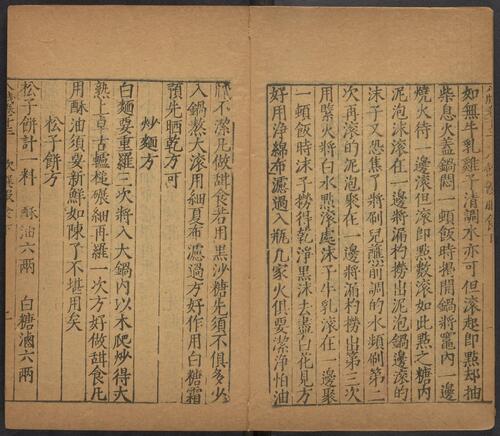 如無牛乳雞子清調水亦可但滾起即點却抽
柴息火蓋鍋悶一頓飯時揭開鍋將竈內一邊
燒火待一邊滾但滾即點數滾如此點之糖內
泥泡沫滾在一邊將漏杓撈出泥泡鍋邊滾的
沫子又恐焦了將刷兒蘸前調的水頻刷第二
次再滾的泥泡聚在一邊將漏杓撈出第三次
用緊火將白水點滾處沫子牛乳滾在一邊聚
一頓飯時沫子撈得乾淨黑沫去盡白花見方
好用淨綿布濾過入瓶凡家火俱要潔淨怕油
膩不潔凡做甜食若用黑沙糖先須不俱多少
入鍋熬大滾用細夏布濾過方好作用白糖霜
預先晒乾方可
炒麵方
白麵要重羅三次將入大鍋內以木爬炒得大
熟上卓古轤槌碾細再羅一次方好做甜食凡
用酥油須要新鮮如陳了不堪用矣
松子餅方
松子餅計一料 酥油六兩 白糖滷六兩